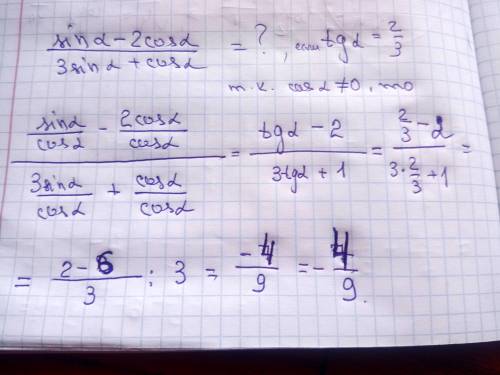 (sinα - 2cosα)/(3sinα + cosα) = ? , если tgα = 2/3
т.к. cosα ≠ 0, то
(sinα/cosα - 2cosα/cosα)/(3sinα/cosα + cosα/cosα) = (tgα - 2)/(3tgα + 1) = (2/3 - 2)/(3·2/3 + 1) =
= (2-6)/3 : 3 = -4/9 = -4/9.